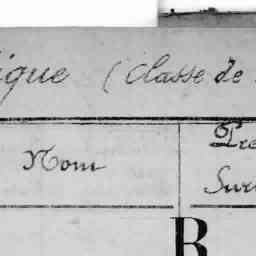 ique (Classe de
Nom
Pré
Sur
B